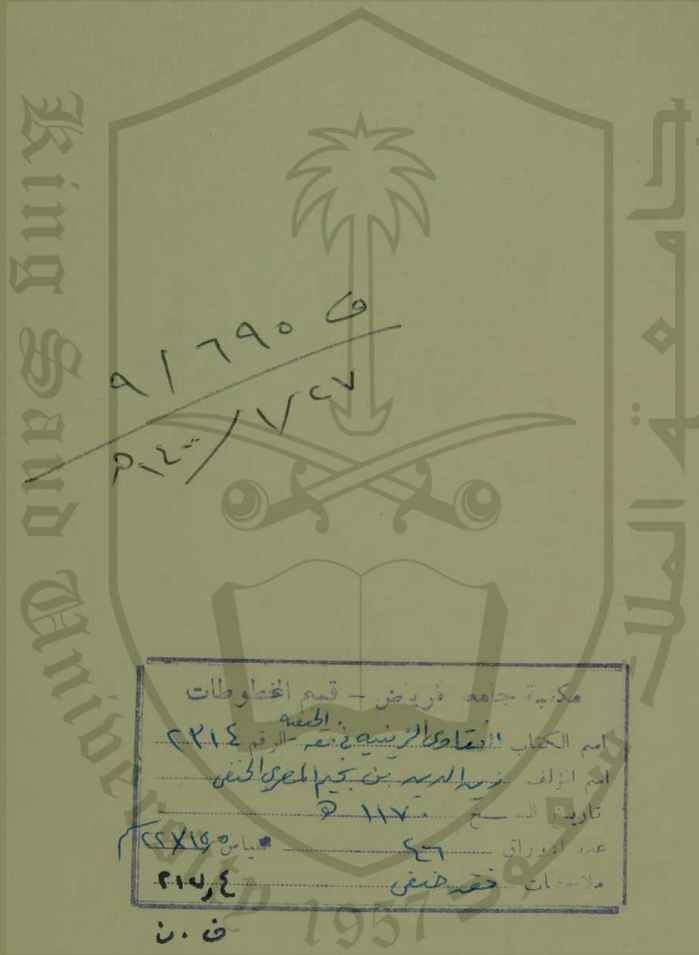 King Saud University
جامعة الملك
ف ٦٩٥ / ٩
٢٧ / ١ / ١٤٠٠ هـ
مكتبة جامعة الرياض - قسم المخطوطات
اسم الكتاب الفتاوى الزينية في فقه الحنفية الرقم ٢٣١٤
اسم المؤلف زين الدين بن نجيم المصري الحنفي
تاريخ النسخ ١١٧٠ هـ
عدد الأوراق ٤٦ قياس ٢٢X١٥,٥ سم
ملاحظات فقه حنفي ٢١٧,٤
ف . ن
1957